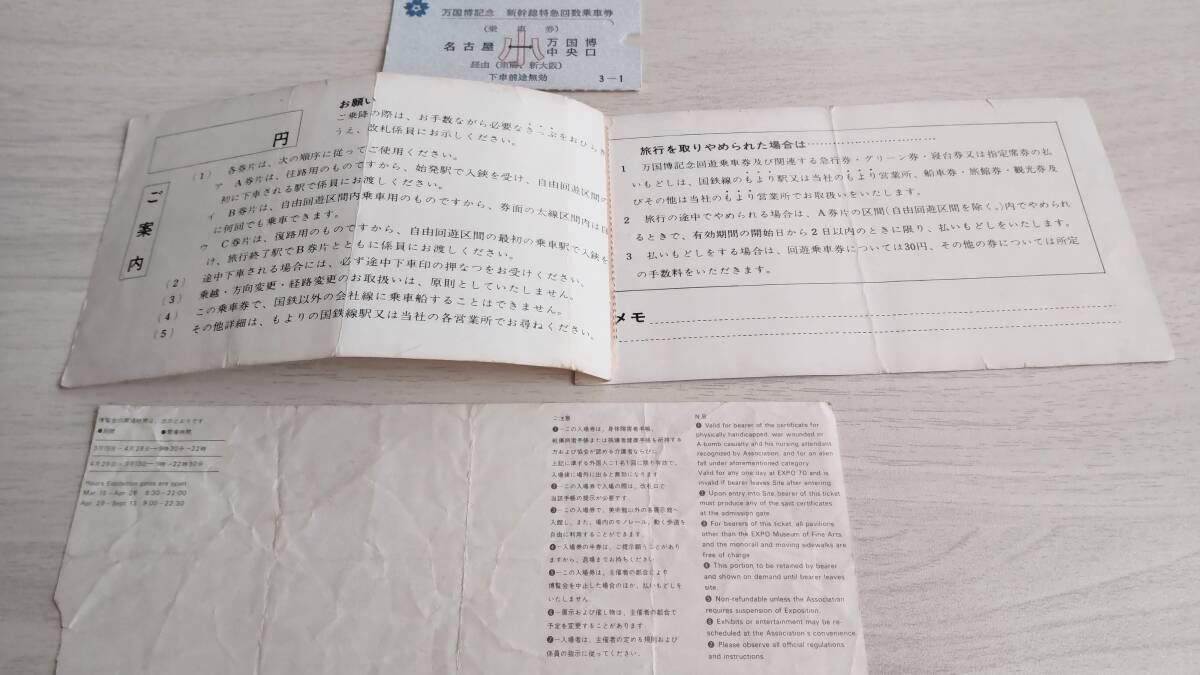 万国博記念 新幹線特急回数乗車券
名古屋
万国博
中央口
小
下車前途無効
3-1
お願い
ご乗降の際は、お手数ながら必要なきっぷをおひらき
うえ、改札係員にお示しください。
円
ご案内
(1) 各券片は、次の順序に従ってご使用ください。
ア A券片は、往路用のものですから、始発駅で入鋏を受け、自由回遊区間の
初に下車される駅で係員にお渡しください。
イ B券片は、自由回遊区間内乗車用のものですから、券面の太線区間内は自
に何回でも乗車できます。
ウ C券片は、復路用のものですから、自由回遊区間の最初の乗車駅で入鋏を
け、旅行終了駅でB券片とともに係員にお渡しください。
(2) 途中下車される場合には、必ず途中下車印の押なつをお受けください。
(3) 乗越・方向変更・経路変更のお取扱いは、原則としていたしません。
(4) この乗車券で、国鉄以外の会社線に乗車船することはできません。
(5) その他詳細は、もよりの国鉄線駅又は当社の各営業所でお尋ねください。
旅行を取りやめられた場合は
1 万国博記念回遊乗車券及び関連する急行券・グリーン券・寝台券又は指定席券の払
いもどしは、国鉄線のもより駅又は当社のもより営業所、船車券・旅館券・観光券及
びその他は当社のもより営業所でお取扱いをいたします。
2 旅行の途中でやめられる場合は、A券片の区間(自由回遊区間を除く。)内でやめられ
るときで、有効期間の開始日から2日以内のときに限り、払いもどしをいたします。
3 払いもどしをする場合は、回遊乗車券については30円、その他の券については所定
の手数料をいただきます。
メモ
●期間 ●開場時間
Hours Exhibition gates are open
Mar. 15-Apr. 28 9:30-22:00
Apr. 29-Sept. 13 9:00-22:30
ご注意
❶ーこの入場券は、身体障害者手帳、
戦傷病者手帳または被爆者健康手帳を所持する
方および協会が認める介護者ならびに
上記に準ずる外国人ご1名1回に限り有効で、
入場後に場外に出ると無効になります
❷ーこの入場券で入場の際は、改札口で
当該手帳の提示が必要です.
❸ーこの入場券で、美術館以外の各展示館へ
入館し、また、場内のモノレール、動く歩道を
自由に利用することができます.
❹ー入場券の半券は、ご提示願うことがあり
ますから、退場までお持ちください
❺ーこの入場券は、主催者の都合により
博覧会を中止した場合のほか、払いもどしを
いたしません.
❻ー展示および催し物は、主催者の都合で
予定を変更することがあります.
❼ー入場者は、主催者の定める規則および
係員の指示に従ってください.
N.B.
❶ Valid for bearer of the certificate for
physically handicapped, war wounded or
A-bomb casualty and his nursing attendant
recognized by Association, and for an alien
fall under aforementioned category.
Valid for any one day at EXPO'70 and is
invalid if bearer leaves Site after entering.
❷ Upon entry into Site bearer of this ticket
must produce any of the said certificates
at the admission gate.
❸ For bearers of this ticket, all pavilions
other than the EXPO Museum of Fine Arts,
and the monorail and moving sidewalks are
free of charge
❹ This portion to be retained by bearer
and shown on demand until bearer leaves
site.
❺ Non-refundable unless the Association
requires suspension of Exposition.
❻ Exhibits or entertainment may be re-
scheduled at the Association's convenience.
❼ Please observe all official regulations
and instructions.